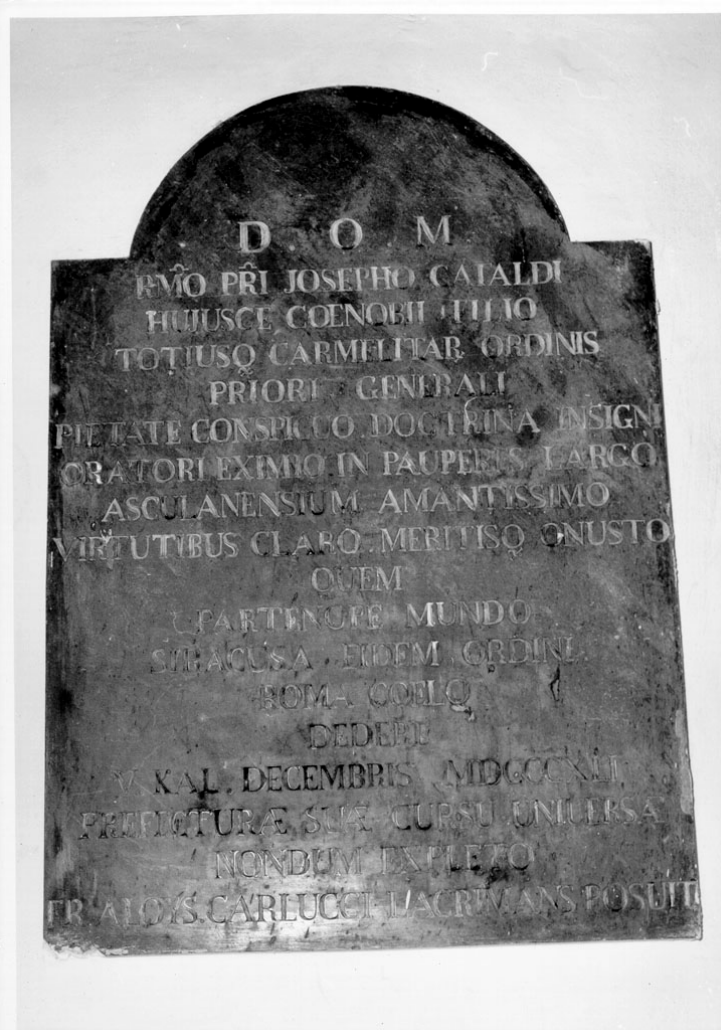 D . O . M
RM̂O PR̂I JOSEPHO CATALDI
HUIUSCE COENOBII FILIO
TOTIUSQ CARMELITAR ORDINIS
PRIORI GENERALI
PIETATE CONSPICUO DOCTRINA INSIGNI
ORATORI EXIMIO IN PAUPERES LARGO
ASCULANENSIUM AMANTISSIMO
VIRTUTIBUS CLARO MERITISQ ONUSTO
QUEM
PARTENOPE MUNDO
SIRACUSA EIDEM ORDINI
ROMA COELO
DEDERE
KAL . DECEMBRIS
PREFECTURÆ SUÆ CURSU UNIVERSÆ
NONDUM EXPLETO
FR ALOYS. CARLUCCI LACRIMANS POSUIT